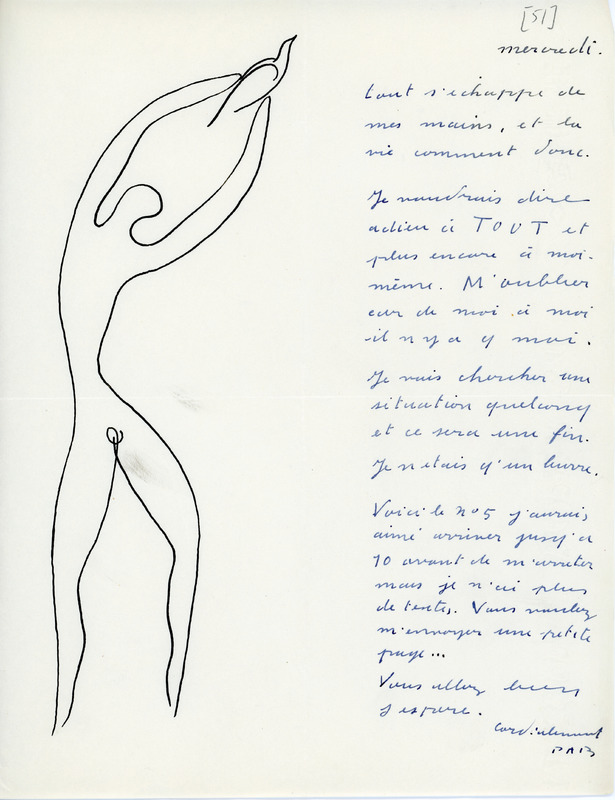 [51]
mercredi.
tout s'échappe de
mes mains, et la
vie comment donc.
Je voudrais dire
adieu à TOUT et
plus encore à moi-
même. M'oublier
car de moi à moi
il n y a q moi.
Je vais chercher une
situation quelconq
et ce sera une fin.
Je n etais q'un leurre.
Voici le no 5 j'aurais
aimé arriver jusq'a
10 avant de m'arreter
mais je n'ai plus
de textes. Vous voudrez
m'envoyer une petite
page...
Vous allez bien
j espere.
Cordialement
PAB